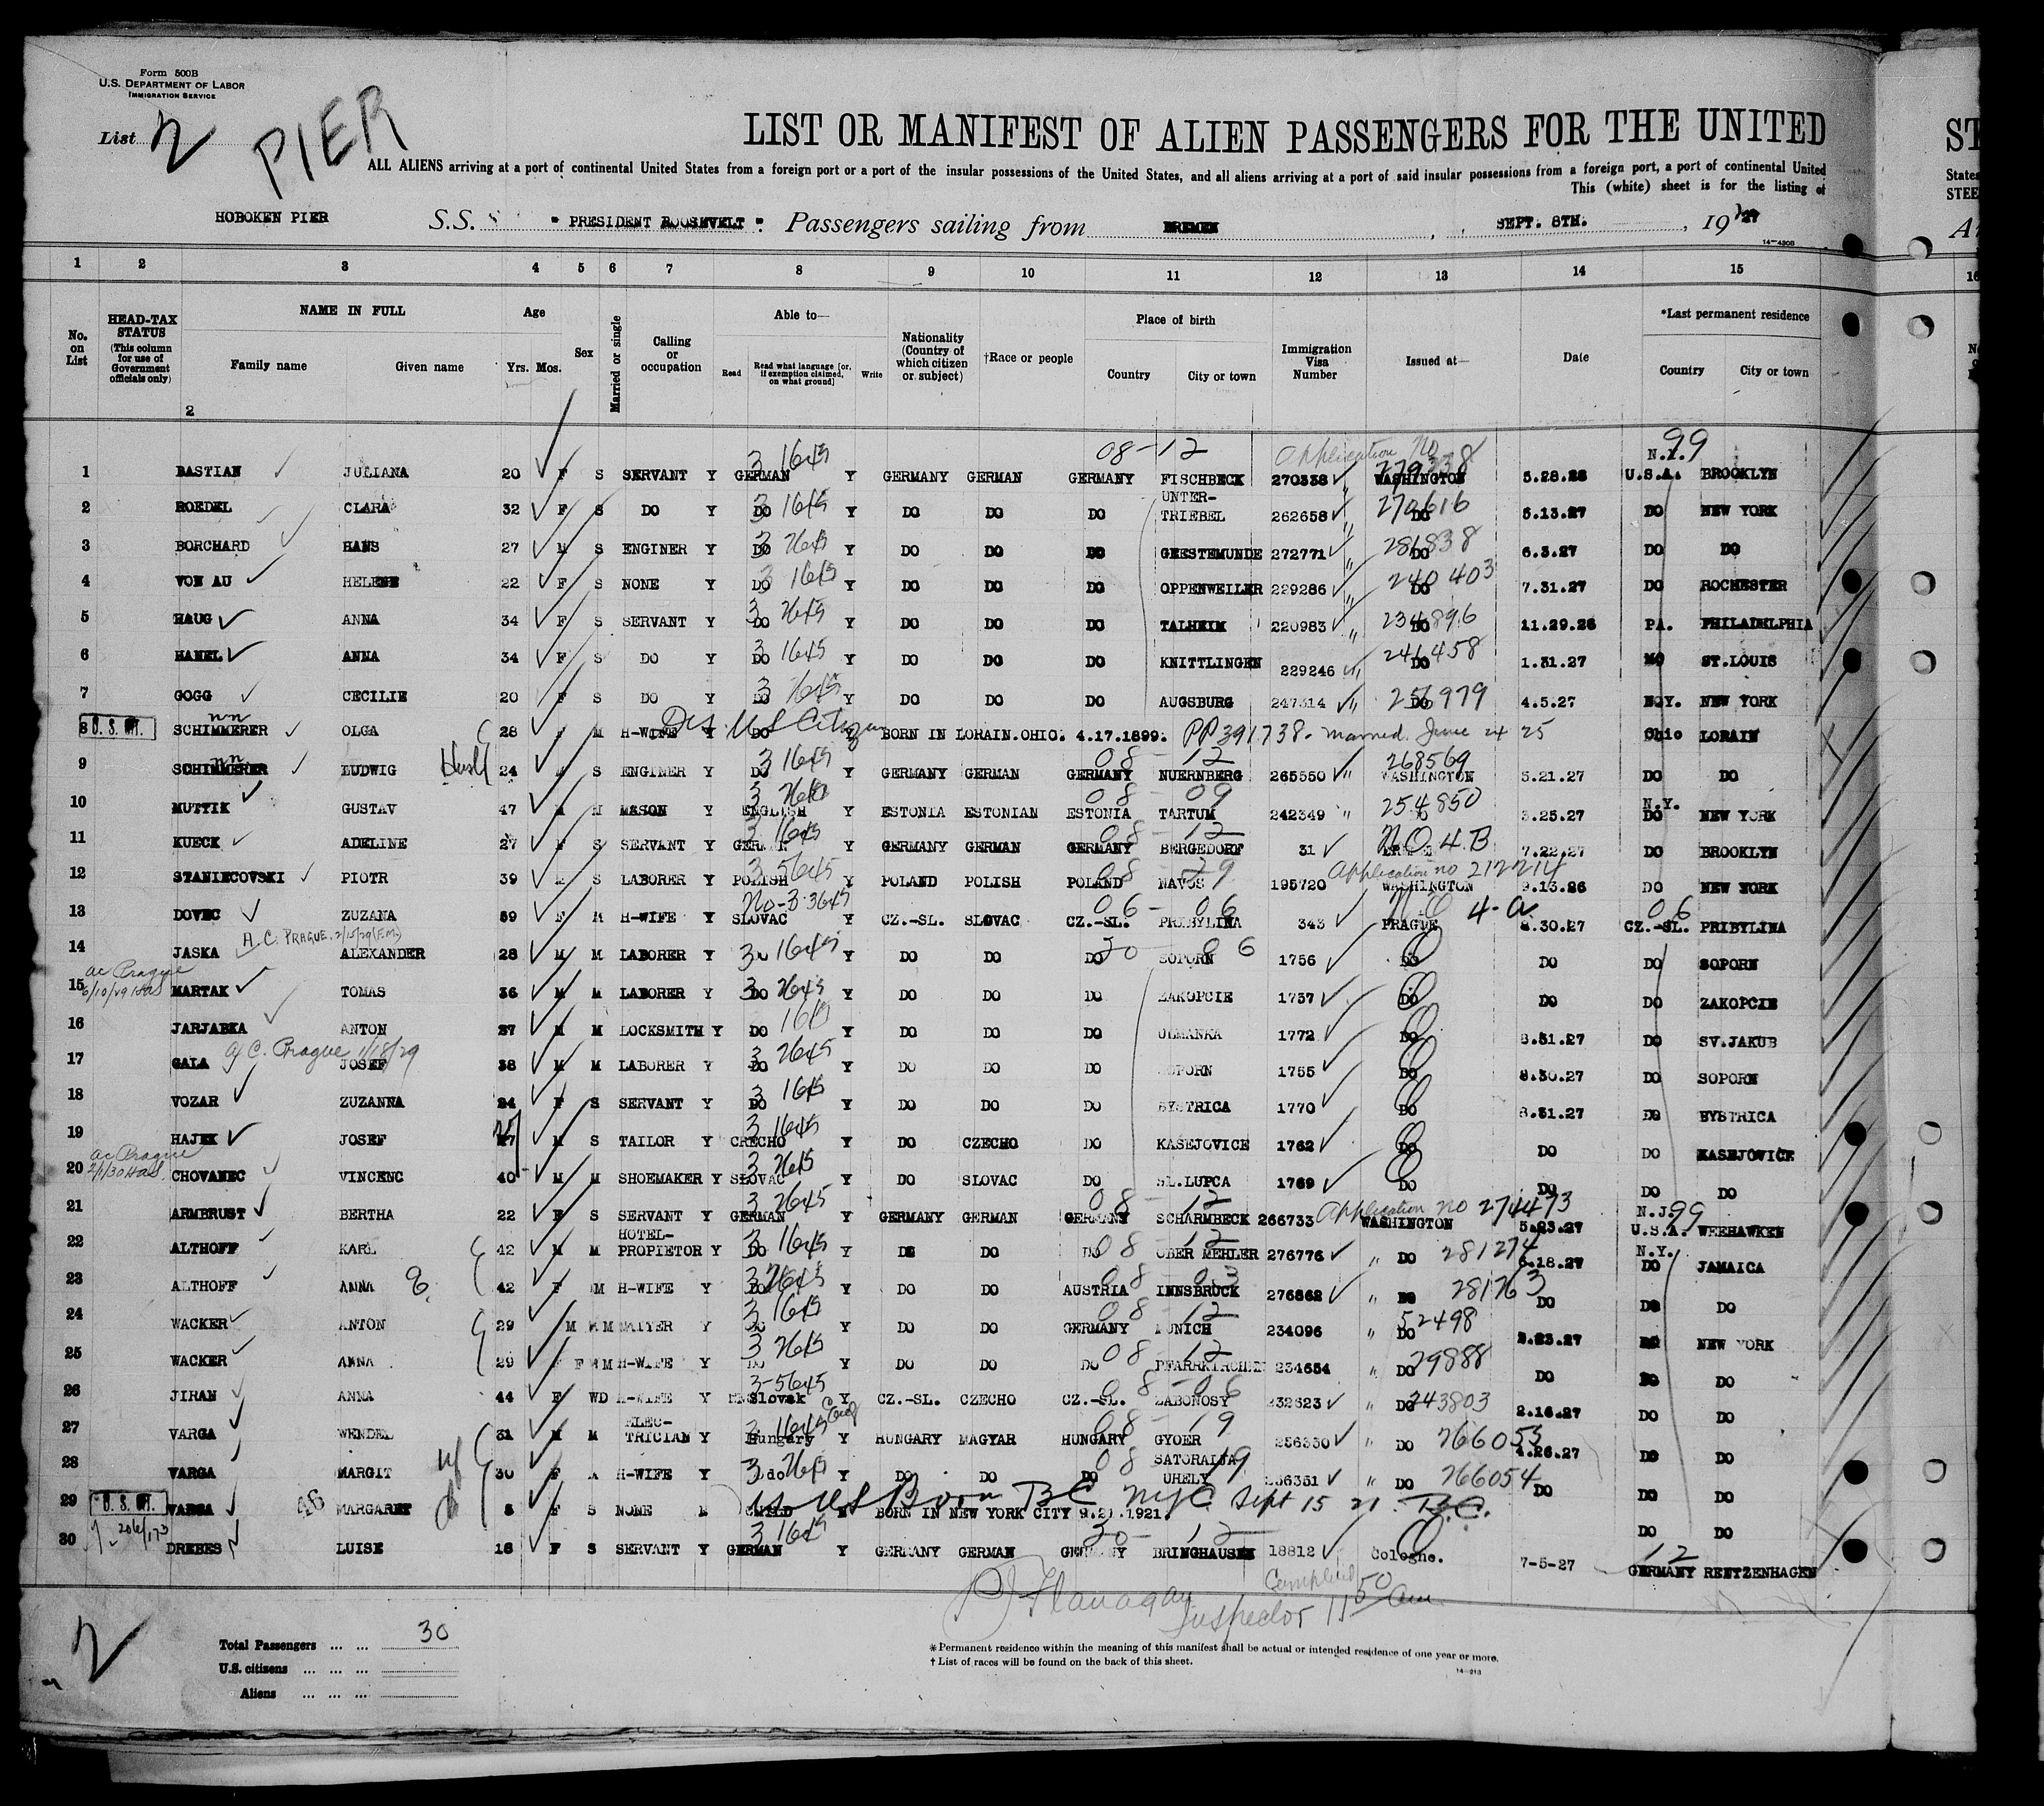 Form 500B
U.S. DEPARTMENT OF LABOR
IMMIGRATION SERVICE
List 2 PIER
LIST OR MANIFEST OF ALIEN PASSENGERS FOR THE UNITED ST
ALL ALIENS arriving at a port of continental United States from a foreign port or a port of the insular possessions of the United States, and all aliens arriving at a port of said insular possessions from a foreign port, a port of continental United States
This (white) sheet is for the listing of STEE
HOBOKEN PIER S.S. "PRESIDENT ROOSEVELT". Passengers sailing from BREMEN, SEPT. 8TH., 1927
14—430B
1 2 3 4 5 6 7 8 9 10 11 12 13 14 15 16
No. on List HEAD-TAX STATUS (This column for use of Government officials only) NAME IN FULL Family name Given name Age Yrs. Mos. Sex Married or single Calling or occupation Able to— Read Read what language [or, if exemption claimed, on what ground] Write Nationality (Country of which citizen or subject) †Race or people Place of birth Country City or town Immigration Visa Number Issued at— Date *Last permanent residence Country City or town
2
08-12 Application No 99
1 BASTIAN JULIANA 20 F S SERVANT Y GERMAN 3 1645 Y GERMANY GERMAN GERMANY FISCHBECK 270338 WASHINGTON 5.28.26 N.Y. U.S.A. BROOKLYN
2 ROEDEL CLARA 32 F S DO Y DO 3 1645 Y DO DO DO UNTER-TRIEBEL 262658 270616 DO 5.13.27 DO NEW YORK
3 BORCHARD HANS 27 M S ENGINER Y DO 3 2645 Y DO DO DO GEESTEMUNDE 272771 281838 DO 6.3.27 DO DO
4 VON AU HELENE 22 F S NONE Y DO 3 1645 Y DO DO DO OPPENWEILER 229286 240403 DO 7.31.27 DO ROCHESTER
5 HAUG ANNA 34 F S SERVANT Y DO 3 2645 Y DO DO DO TALHEIM 220983 234896 DO 11.29.26 PA. PHILADELPHIA
6 HAMEL ANNA 34 F S DO Y DO 3 1645 Y DO DO DO KNITTLINGEN 229246 241458 DO 1.31.27 MO ST.LOUIS
7 GOGG CECILIE 20 F S DO Y DO 3 2645 Y DO DO DO AUGSBURG 247314 256979 DO 4.5.27 N.Y. NEW YORK
8 U.S. CIT. SCHIMMERER nn OLGA 28 F M H-WIFE Y DO US Citizen Y BORN IN LORAIN.OHIO. 4.17.1899. PP 391738. married June 24 25 Ohio LORAIN
9 SCHIMMERER nn LUDWIG Husb 24 M S ENGINER Y DO 3 1645 Y GERMANY GERMAN GERMANY 08-12 NUERNBERG 265550 268569 WASHINGTON 5.21.27 DO DO
10 MUTTIK GUSTAV 47 M M MASON Y ENGLISH Y ESTONIA ESTONIAN ESTONIA 08-09 TARTUM 242349 254850 3.25.27 N.Y. DO NEW YORK
11 KUECK ADELINE 27 F S SERVANT Y GERMAN 3 1645 Y GERMANY GERMAN GERMANY 08-12 BERGEDORF 31 N.Q.4.B 7.22.27 DO BROOKLYN
12 STANIECOVSKI PIOTR 39 M S LABORER Y POLISH 3 5645 Y POLAND POLISH POLAND NAVOS 195720 Application no 212214 WASHINGTON 9.13.26 DO NEW YORK
13 DOVEC ZUZANA 59 F M H-WIFE Y SLOVAC No-3-3645 Y CZ.-SL. SLOVAC CZ.-SL. 06-06 PRIBYLINA 343 PRAGUE 4-a 8.30.27 06 CZ.-SL. PRIBYLINA
A.C. PRAGUE. 2/15/29 (F.M.)
14 JASKA ALEXANDER 28 M M LABORER Y DO 3 1645 Y DO DO DO 30 06 SOPORN 1756 DO DO DO SOPORN
ac Prague 6/10/29 Has
15 MARTAK TOMAS 36 M M LABORER Y DO 3 2645 Y DO DO DO ZAKOPCIE 1757 DO DO DO ZAKOPCIE
16 JARJABKA ANTON 27 M M LOCKSMITH Y DO 1645 Y DO DO DO ULMANKA 1772 DO 8.31.27 DO SV.JAKUB
A/C. Prague 1/18/29
17 GALA JOSEF 38 M M LABORER Y DO 3 2645 Y DO DO DO SOPORN 1755 DO 8.30.27 DO SOPORN
18 VOZAR ZUZANNA 24 F S SERVANT Y DO 3 1645 Y DO DO DO BYSTRICA 1770 DO 8.31.27 DO BYSTRICA
19 HAJEK JOSEF 27 M S TAILOR Y CZECHO 3 1645 Y DO CZECHO DO KASEJOVICE 1762 DO DO DO KASEJOVICE
ac Prague 2/1/30 Has.
20 CHOVANEC VINCENC 40 M M SHOEMAKER Y SLOVAC 3 2645 Y DO SLOVAC DO SL.LUPCA 1769 DO DO DO DO
21 ARMBRUST BERTHA 22 F S SERVANT Y GERMAN 3 2645 Y GERMANY GERMAN GERMANY 08-12 SCHARMBECK 266733 Application no 274473 WASHINGTON 5.23.27 N.J. 99 U.S.A. WEEHAWKEN
22 ALTHOFF KARL 42 M M HOTEL-PROPIETOR Y DO 3 1645 Y DO DO DO 08-12 OBER MEHLER 276776 " DO 281274 6.18.27 N.Y. DO JAMAICA
23 ALTHOFF ANNA 42 F M H-WIFE Y DO 3 2645 Y DO DO AUSTRIA 08-03 INNSBRUCK 276862 " DO 281763 DO DO DO
24 WACKER ANTON 29 M M Y DO 3 1645 Y DO DO GERMANY 08-12 MUNICH 234096 " DO 52498 2.23.27 DO NEW YORK
25 WACKER ANNA 29 F M H-WIFE Y DO 3 2645 Y DO DO DO 08-12 PFARRKIRCHEN 234654 " DO 79888 DO DO DO
26 JIRAN ANNA 44 F WD H-WIFE Y Slovak 3-5645 Y CZ.-SL. CZECHO CZ.-SL. 08-06 ZABONOSY 232623 " DO 243803 2.16.27 DO DO
27 VARGA WENDEL 31 M M ELEC-TRICIAN Y Hungary 3 1645 Eng Y HUNGARY MAGYAR HUNGARY 08-19 GYOER 256350 " DO 266053 4.26.27 DO DO
28 VARGA MARGIT wf 30 F M H-WIFE Y do 3 2645 Y DO DO DO 08 19 SATORALJA UHELY 256351 " DO 266054 DO DO DO
29 U.S. CIT. VARGA MARGARET 5 F S NONE N CHILD N US Born BC NYC Sept 15 21. B.C. BORN IN NEW YORK CITY 9.21.1921. DO DO
206/173
30 DREBES LUISE 18 F S SERVANT Y GERMAN 3 1645 Y GERMANY GERMAN GERMANY 30-12 BRINGHAUSEN 18812 Cologne. 7-5-27 12 GERMANY RENTZENHAGEN
PJ Flanagan Inspector Completed 11 50 am
2
Total Passengers ... ... 30
U.S. citizens ... ... ...
Aliens ... ... ...
* Permanent residence within the meaning of this manifest shall be actual or intended residence of one year or more.
† List of races will be found on the back of this sheet.
14—213